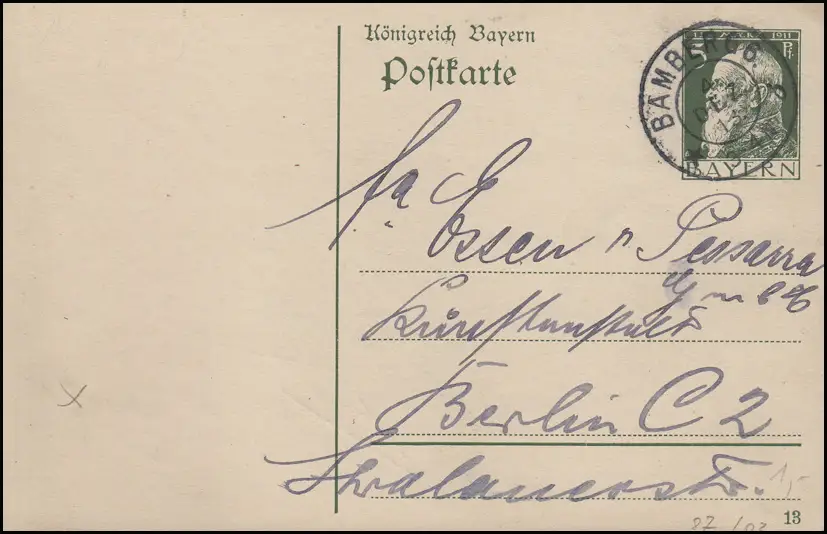 Königreich Bayern
Postkarte
BAMBERG
5 Pf.
1911
BAYERN
fa Essen n Pessarra
GmbH
Kunstanstalt
Berlin C 2
Stralauerstr.
1,-
13